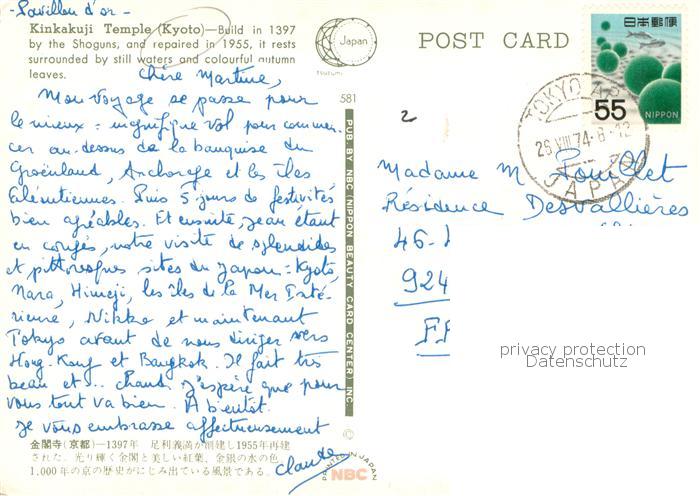 -Pavillon d'or-
Kinkakuji Temple (Kyoto)—Build in 1397
by the Shoguns, and repaired in 1955, it rests
surrounded by still waters and colourful autumn
leaves.
Chère Martine,
Mon voyage se passe pour
le mieux = magnifique vol pour commen-
cer au-dessus de la banquise du
Groënland, Anchorage et les îles
Aléoutiennes. Puis 5 jours de festivités
bien agréables. Et ensuite, Jean étant
en congés, notre visite de splendides
et pittoresques sites du Japon = Kyoto,
Nara, Himeji, les îles de la Mer Inté-
rieure, Nikko et maintenant
Tokyo avant de nous diriger vers
Hong-Kong et Bangkok. Il fait très
beau et.. chaud. J'espère que pour
vous tout va bien. A bientôt.
Je vous embrasse affectueusement
Claude
金閣寺(京都)—1397年 足利義満が創建し1955年再建
された。光り輝く金閣と美しい紅葉、金銀の水の色
1,000年の京の歴史がにじみ出ている風景である。
Japan
tsutomi
581
PUB. BY NBC (NIPPON BEAUTY CARD CENTER) INC.
©
PRINTED IN JAPAN
NBC
POST CARD
2
日本郵便
55
NIPPON
TOKYO
26 VIII 74
JAPAN
Madame M Pouillet
Résidence Desvallières
46-
924
privacy protection
Datenschutz